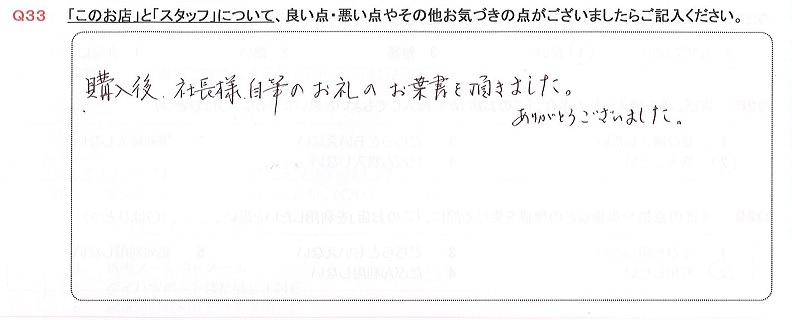 Q33 「このお店」と「スタッフ」について、良い点・悪い点やその他お気づきの点がございましたらご記入ください。
購入後、社長様自筆のお礼のお葉書を頂きました。
ありがとうございました。